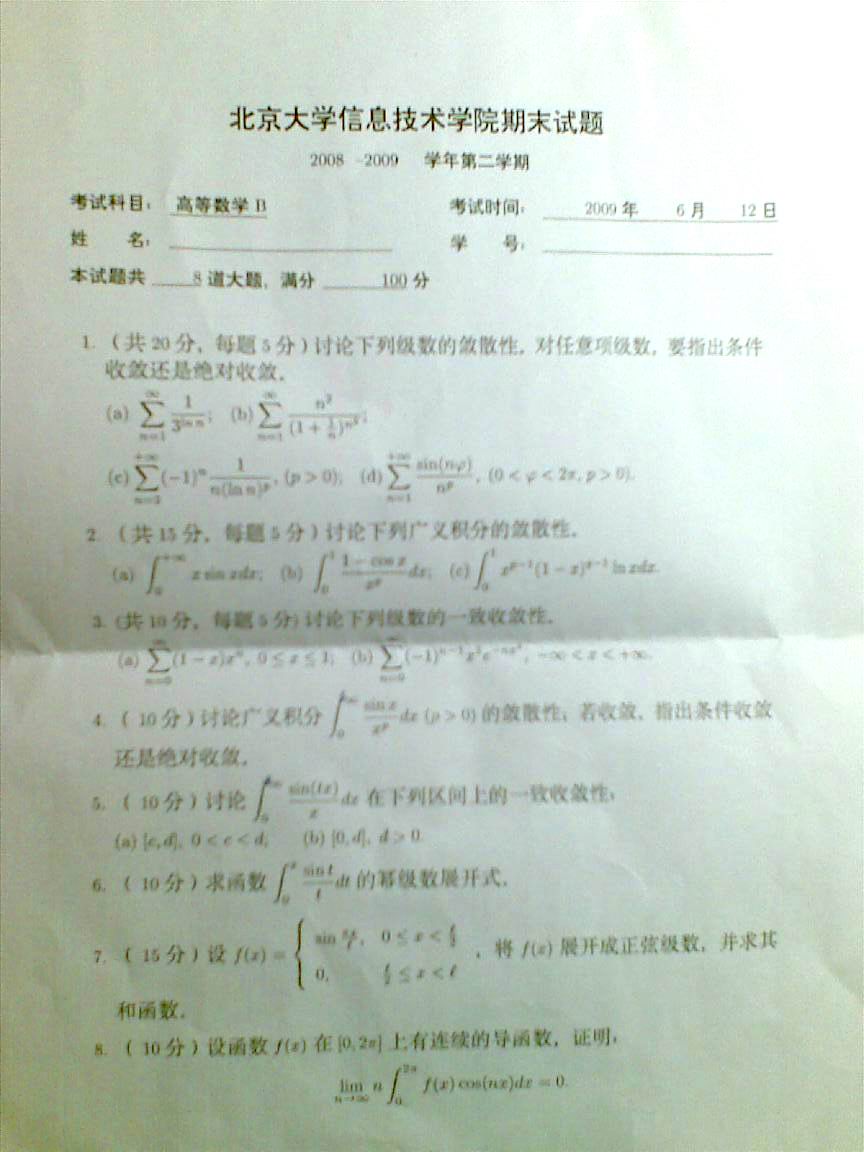 北京大学信息技术学院期末试题
2008 -2009 学年第二学期
考试科目: 高等数学 B 考试时间: 2009 年 6 月 12 日
姓 名: 学 号:
本试题共 8 道大题, 满分 100 分
1. (共 20 分, 每题 5 分) 讨论下列级数的敛散性. 对任意项级数, 要指出条件
收敛还是绝对收敛.
(a) ∑_{n=1}^{∞} 1/3^{ln n}; (b) ∑_{n=1}^{∞} n²/(1+1/n)^{n²};
(c) ∑_{n=3}^{+∞} (-1)^n 1/(n(ln n)^p), (p > 0); (d) ∑_{n=1}^{+∞} sin(nφ)/n^p, (0 < φ < 2π, p > 0).
2. (共 15 分, 每题 5 分) 讨论下列广义积分的敛散性.
(a) ∫_0^{+∞} x sin x dx; (b) ∫_0^1 (1 - cos x)/x^p dx; (c) ∫_0^1 x^{p-1}(1 - x)^{q-1} ln x dx.
3. (共 10 分, 每题 5 分) 讨论下列级数的一致收敛性.
(a) ∑_{n=0}^{∞} (1 - x)x^n, 0 ≤ x ≤ 1; (b) ∑_{n=0}^{∞} (-1)^{n-1} x² e^{-nx²}, -∞ < x < +∞.
4. ( 10 分 ) 讨论广义积分 ∫_0^{+∞} sin x/x^p dx (p > 0) 的敛散性; 若收敛, 指出条件收敛
还是绝对收敛.
5. ( 10 分 ) 讨论 ∫_0^{+∞} sin(tx)/x dx 在下列区间上的一致收敛性:
(a) [c, d], 0 < c < d; (b) [0, d], d > 0.
6. ( 10 分 ) 求函数 ∫_0^x sin t/t dt 的幂级数展开式.
7. ( 15 分 ) 设 f(x) = { sin πx/ℓ, 0 ≤ x < ℓ/2; 0, ℓ/2 ≤ x < ℓ , 将 f(x) 展开成正弦级数, 并求其
和函数.
8. ( 10 分 ) 设函数 f(x) 在 [0, 2π] 上有连续的导函数, 证明:
lim_{n→∞} n ∫_0^{2π} f(x) cos(nx)dx = 0.